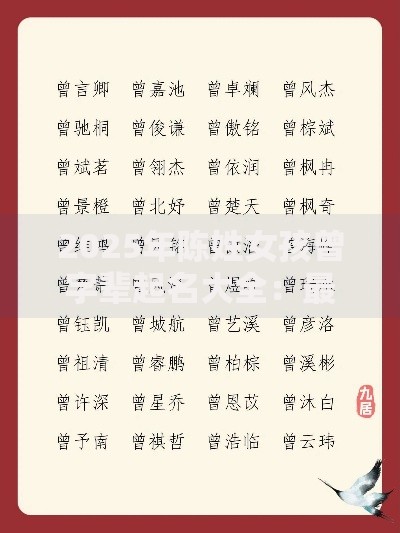 曾言卿 曾嘉池 曾卓斓 曾风杰
曾驰桐 曾俊谦 曾傲铭 曾棕斌
曾斌茗 曾翎杰 曾依润 曾枫冉
曾景橙 曾北妤 曾楚天 曾枫奇
2025年陈姓女孩曾
字辈起名大全：最
曾钰凯 曾城航 曾艺溪 曾彦洛
曾祖清 曾睿鹏 曾柏棕 曾溪彬
曾许深 曾星乔 曾恩苡 曾沐白
曾予南 曾祺哲 曾浩临 曾云玮
九居